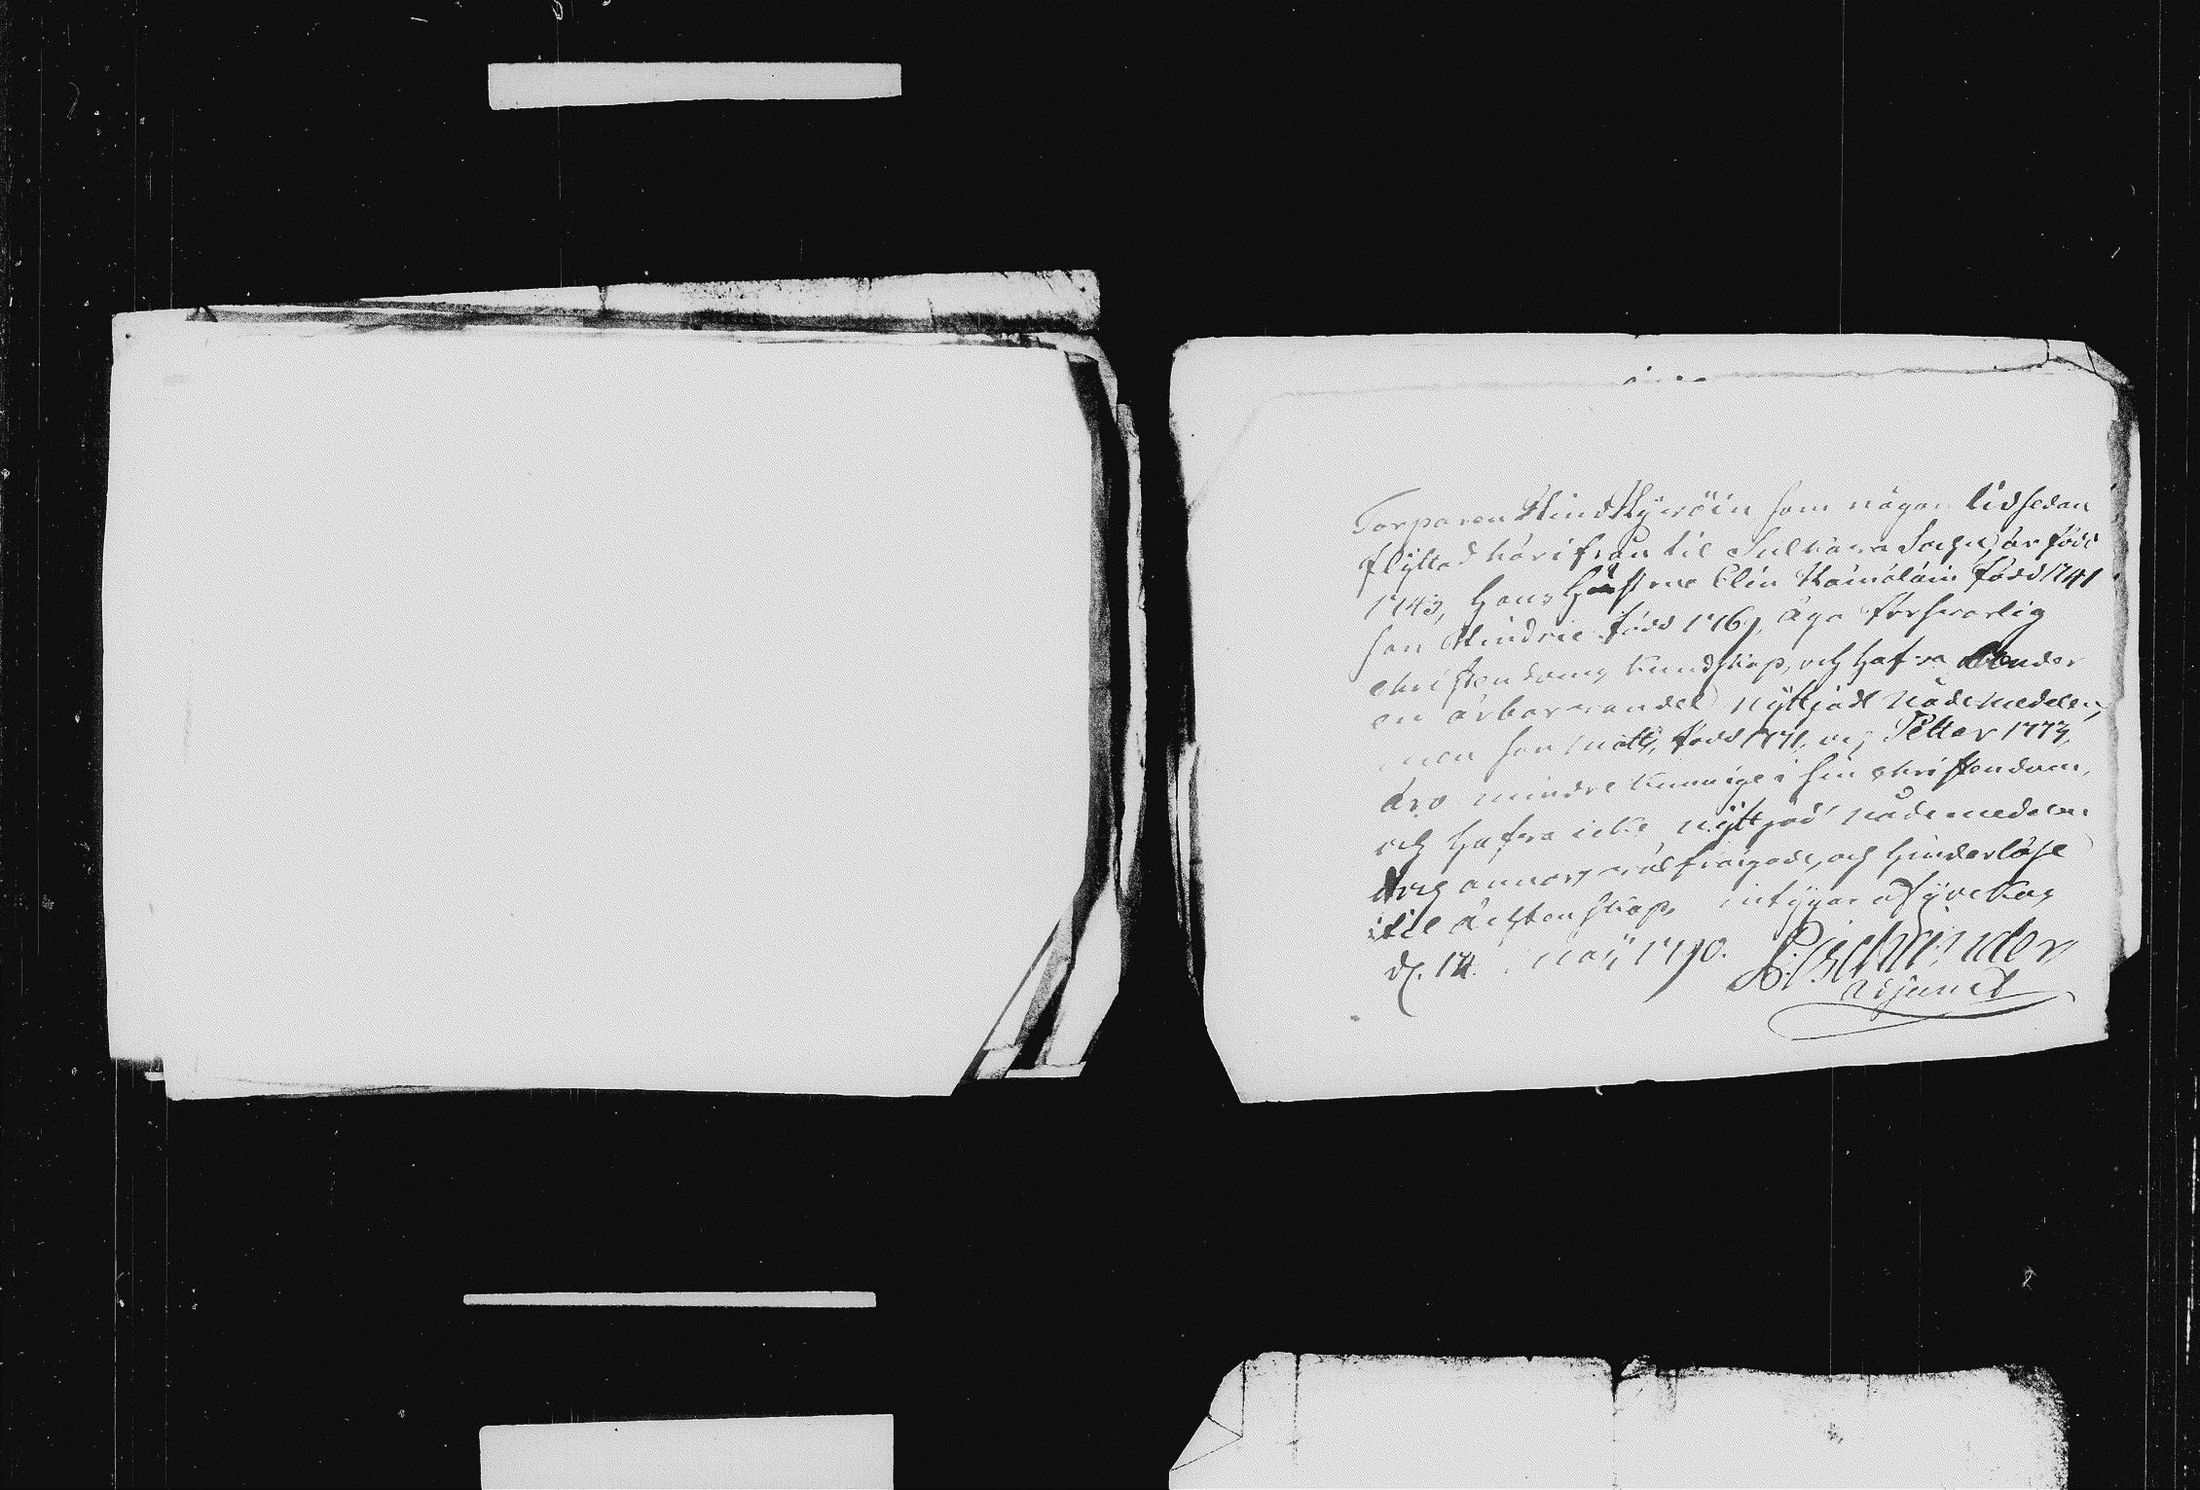 Torparen Hind Kyiröin som någon tid sedan
flyttad härifrån til Sulkava Sochn, är född
1743, Hans Hustru Elin Hämäläin född 1741
son Hindric född 1769, äga försvarlig
christendoms kundskap, och hafva under
en ärbar vandel nyttjadt nådemedelen,
men son Matts, född 1771, och Petter 1773,
äro mindre kunnige i sin christendom,
och hafva icke nyttjad nådemedelen
dock annars välfrägdade, och hinderlöse
til ächtenskap, intygar af Jyväskas
d. 14. Maij 1790.
Adjunct